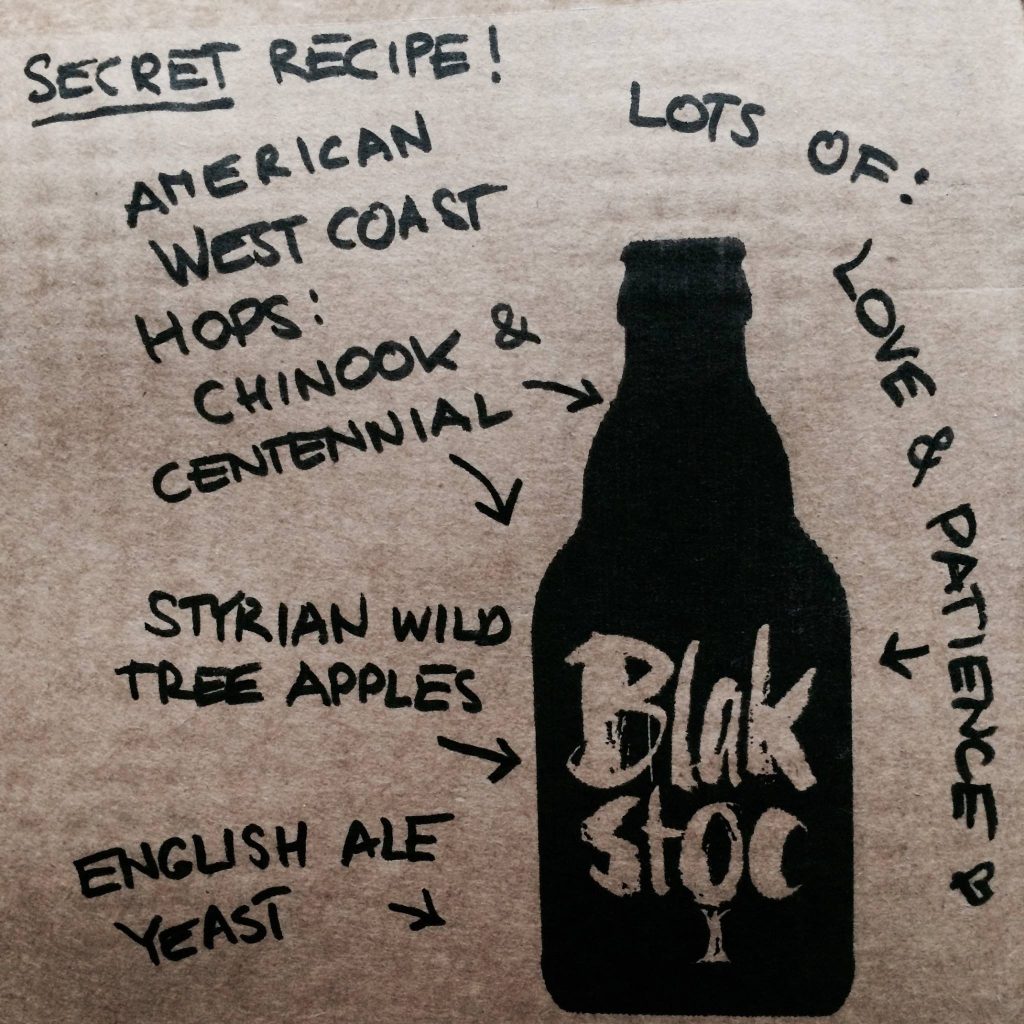 SECRET RECIPE!
AMERICAN
WEST COAST
HOPS:
CHINOOK &
CENTENNIAL
STYRIAN WILD
TREE APPLES
ENGLISH ALE
YEAST
LOTS OF:
LOVE & PATIENCE
Blak
stoc